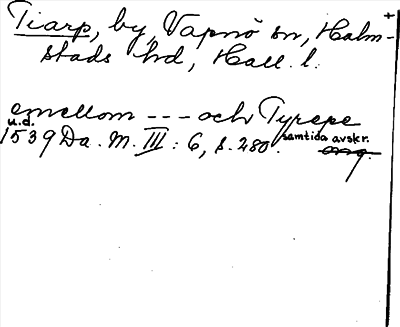 Tiarp, by, Vapnö sn, Halm-
stads hd, Hall. l.
emellom --- och Tyrepe
u.d.
1539 Da. M. III: 6, s. 280. samtida avskr.
orig.